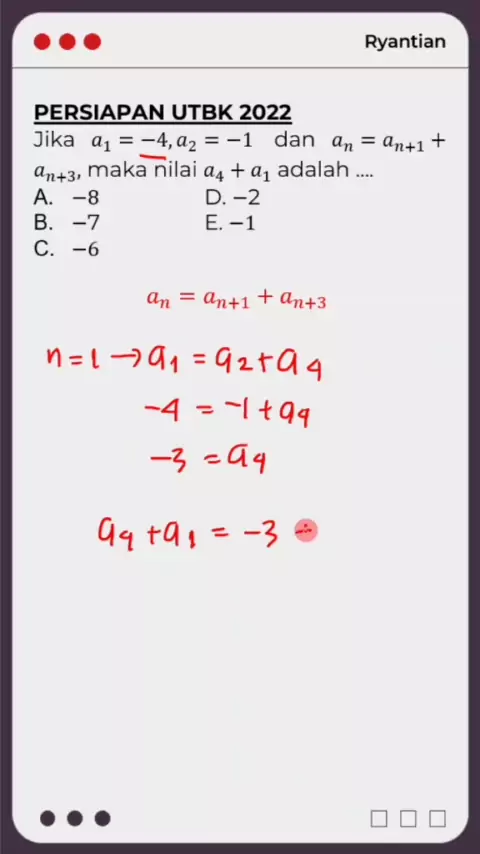 Ryantian
PERSIAPAN UTBK 2022
Jika a₁ = −4, a₂ = −1 dan aₙ = aₙ₊₁ +
aₙ₊₃, maka nilai a₄ + a₁ adalah ....
A. −8 D. −2
B. −7 E. −1
C. −6
aₙ = aₙ₊₁ + aₙ₊₃
n = 1 → a₁ = a₂ + a₄
−4 = −1 + a₄
−3 = a₄
a₄ + a₁ = −3